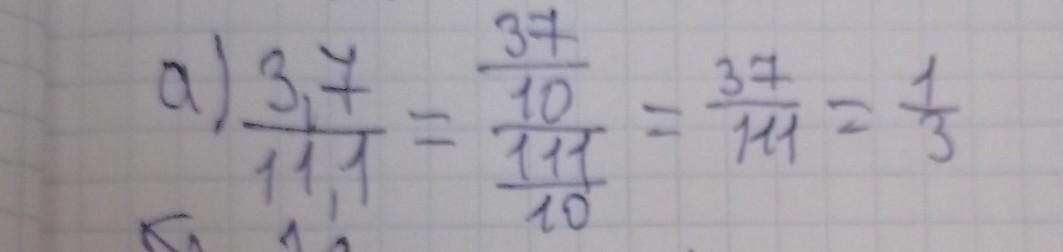 а) 3,7/11,1 = (37/10)/(111/10) = 37/111 = 1/3